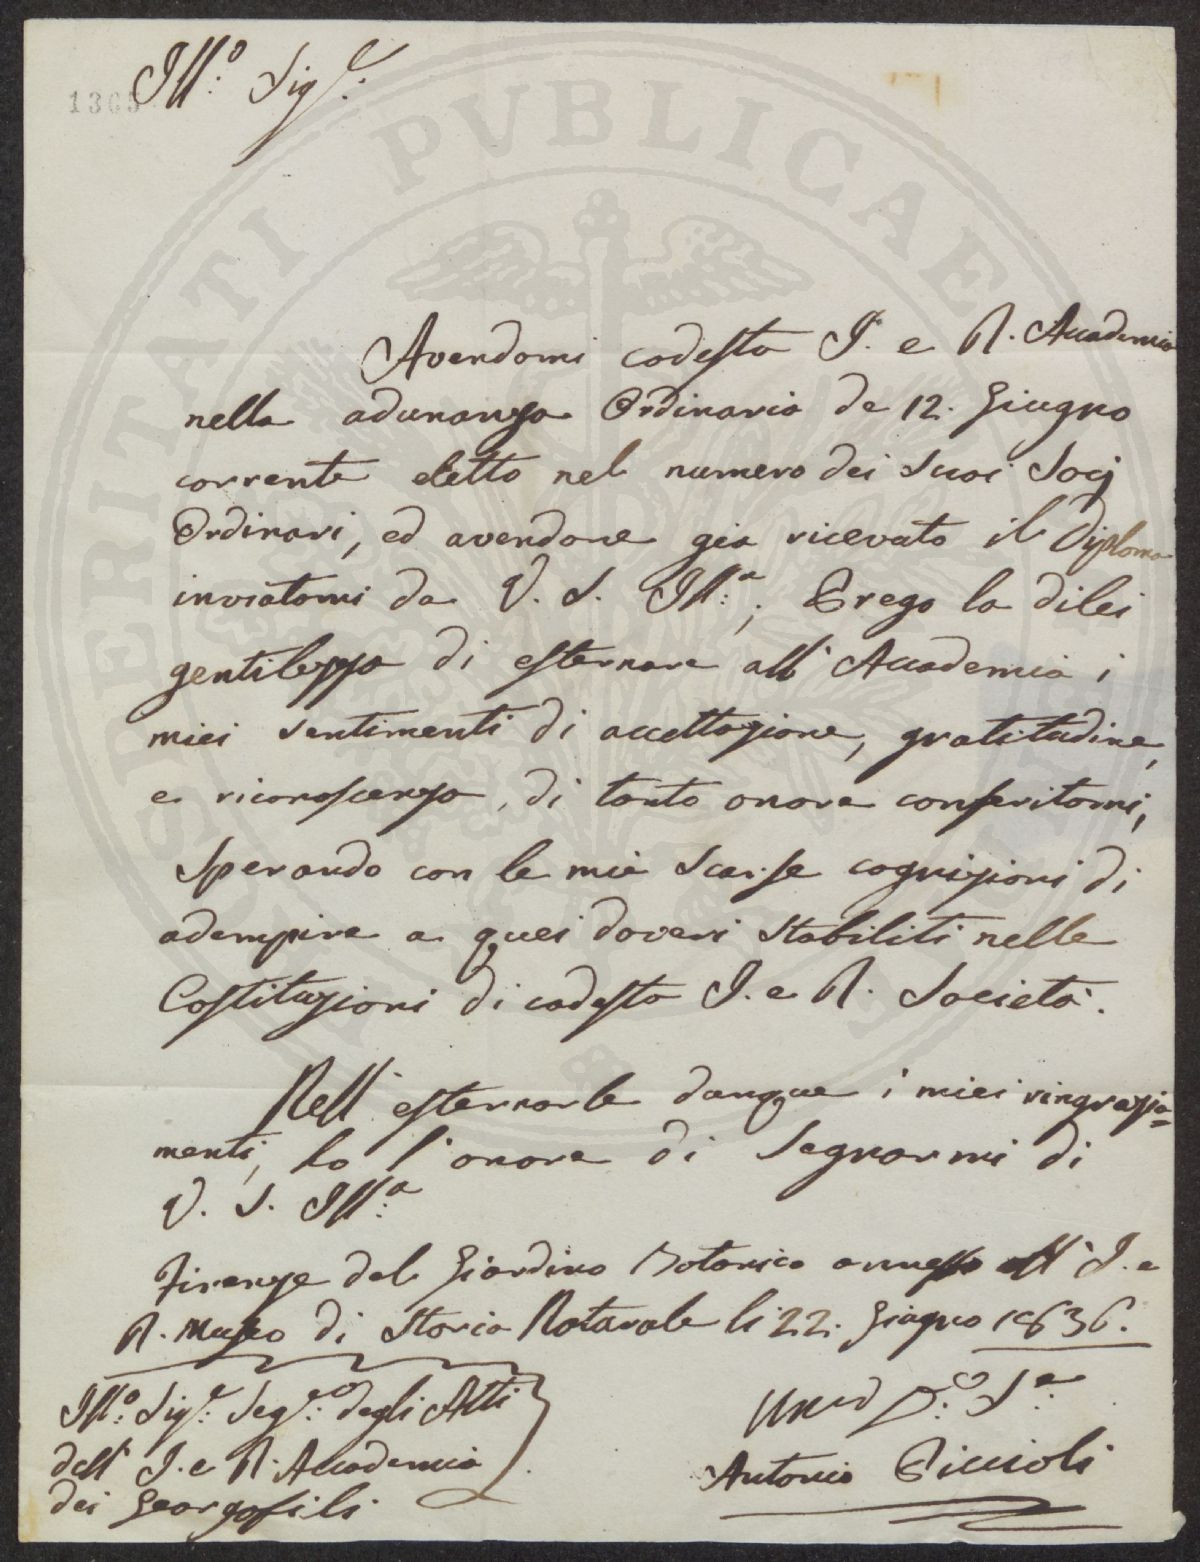 1365
Ill.o Sig.e
Avendomi codesta I. e R. Accademia
nella adunanza Ordinaria de 12. Giugno
corrente eletto nel numero dei suoi Socj
Ordinari, ed avendone gia ricevuto il Diploma
inviatomi da V. S. Ill.a; Prego la di lei
gentilezza di esternare all' Accademia i
miei sentimenti di accettazione, gratitudine,
e riconoscenza, di tanto onore conferitomi,
sperando con le mie scarse cognizioni di
adempire a quei doveri stabiliti nelle
Costituzioni di codesta I. e R. Società.
Nell' esternarle dunque i miei ringrazia=
menti, ho l'onore di segnarmi di
V. S. Ill.a
Firenze dal Giardino Botanico annesso all' I. e
R. Museo di Storia Naturale li 22. Giugno 1836.
Ill.o Sig.e Seg.e degli Atti
dell' I. e R. Accademia
dei Georgofili
Umo D.o S.e
Antonio Piccioli
PROSPERITATI PVBLICAE